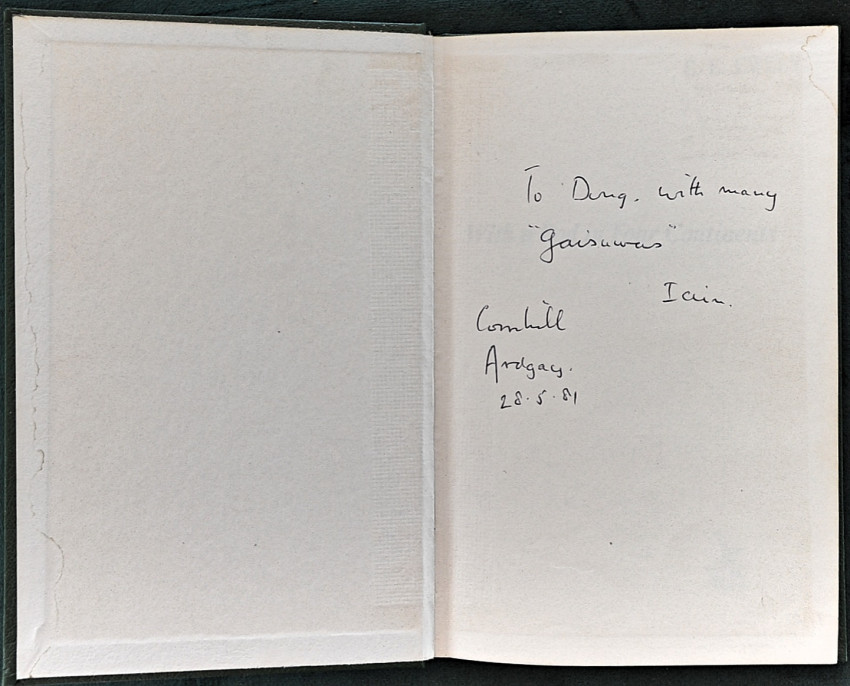 To Doug, with many
"Gaisuwas"
Iain.
Cornhill
Ardgay.
28.5.81